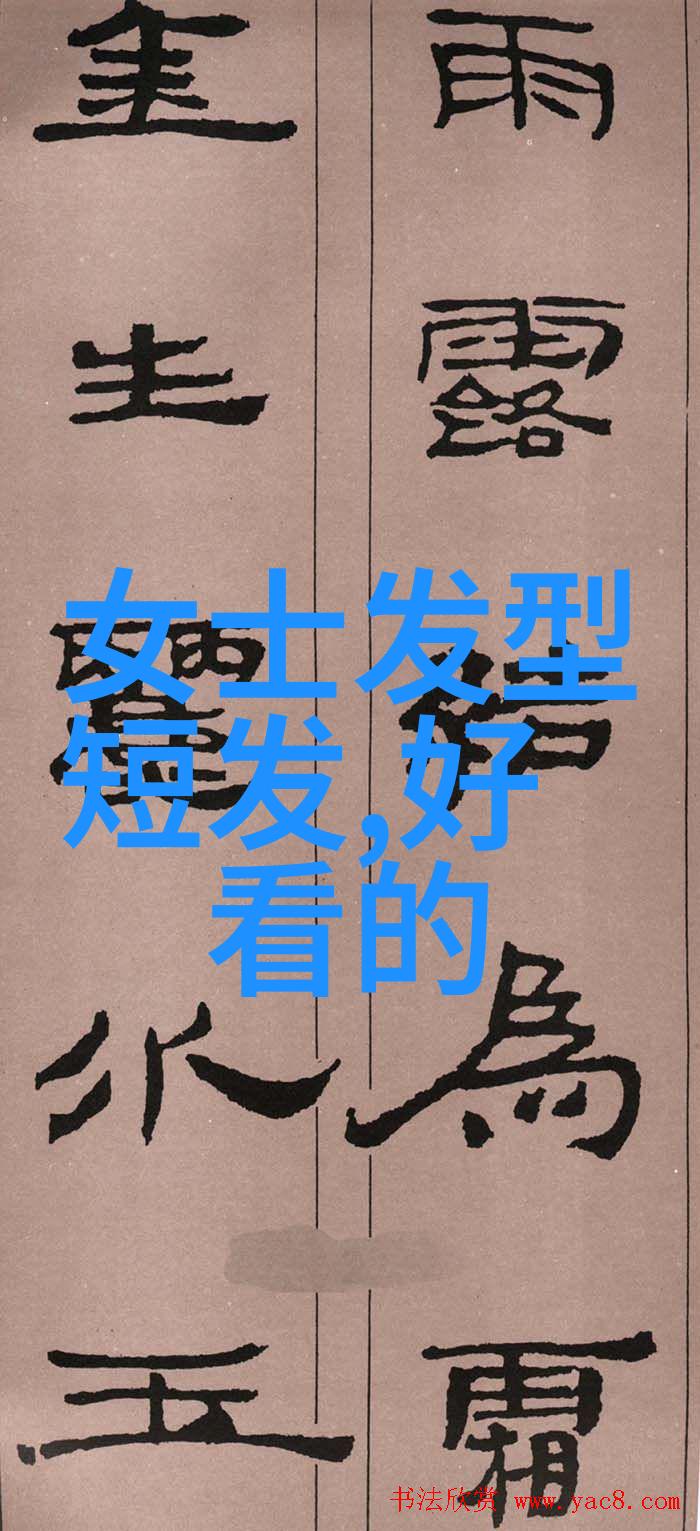 雨露結為霜
金生麗水玉
女士发型
短发,好
看的
书法欣赏 www.yac8.com